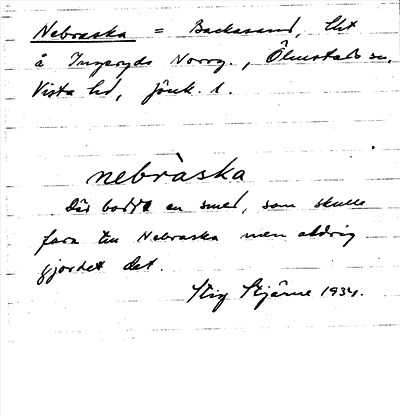 Nebraska = Backasand, lht
å Ingaryds Norrg., Ölmstads sn,
Vista hd, Jönk. l.
nebràska
Där bodde en smed, som skulle
fara till Nebraska men aldrig
gjordet det.
Stig Stjärne 1934.